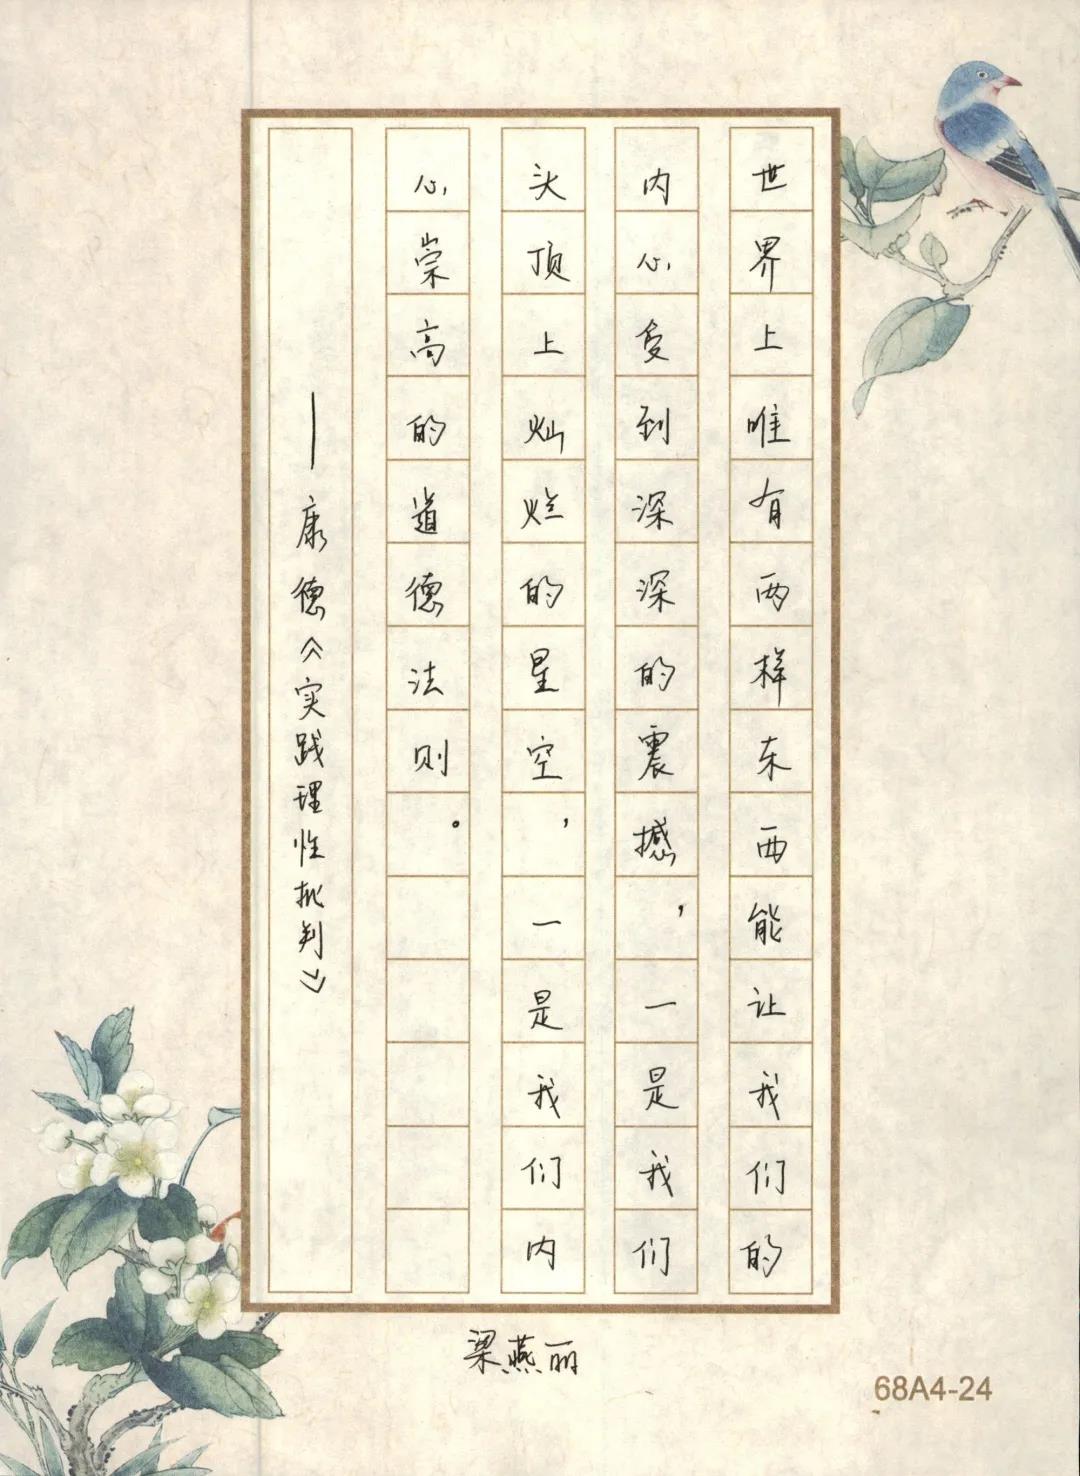 世界上唯有两样东西能让我们的
内心受到深深的震撼，一是我们
头顶上灿烂的星空，一是我们内
心崇高的道德法则。
——康德《实践理性批判》
梁燕丽
68A4-24